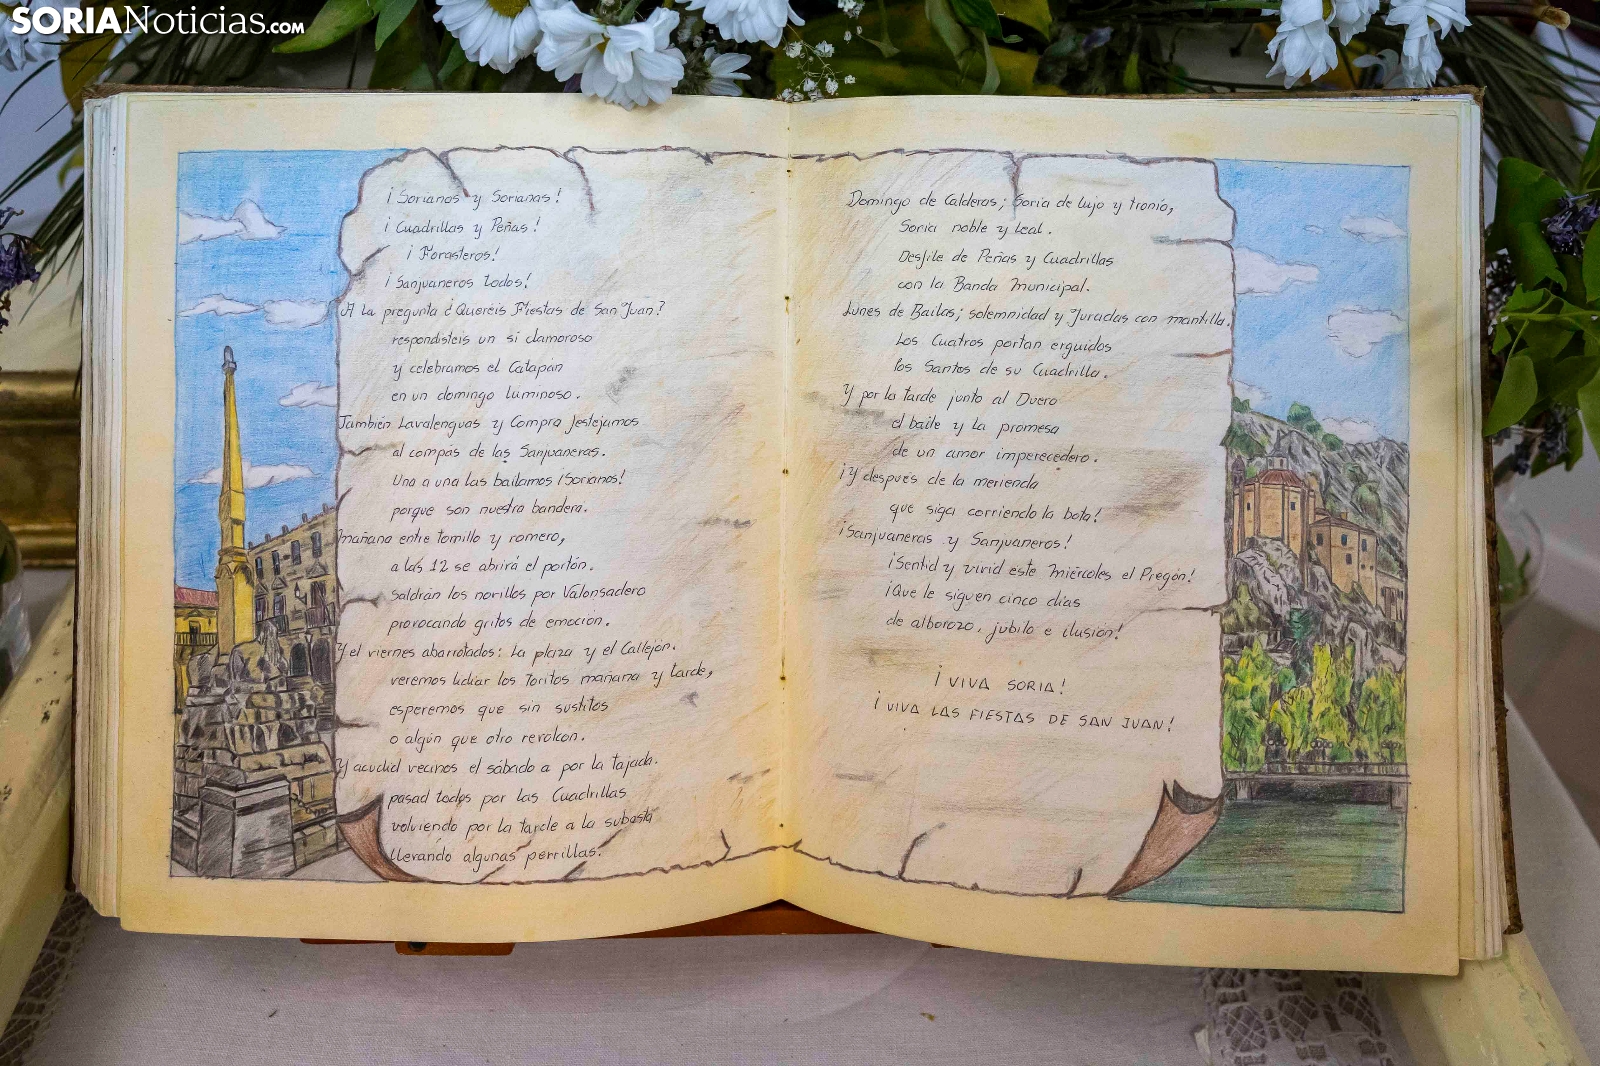 SORIANoticias.com
¡Sorianos y Sorianas!
¡Cuadrillas y Peñas!
¡Forasteros!
¡Sanjuaneros todos!
A la pregunta ¿Queréis Fiestas de San Juan?
respondisteis un si clamoroso
y celebramos el Catapán
en un domingo luminoso.
También Lavalenguas y Compra festejamos
al compás de las Sanjuaneras.
Una a una las bailamos ¡Sorianos!
porque son nuestra bandera.
Mañana entre tomillo y romero,
a las 12 se abrirá el portón.
Saldrán los novillos por Valonsadero
provocando gritos de emoción.
Y el viernes abarrotados: La plaza y el Callejón.
veremos lidiar los Toritos mañana y tarde,
esperemos que sin sustitos
o algún que otro revolcón.
Y acudid vecinos el sábado a por la tajada.
pasad todos por las Cuadrillas
volviendo por la tarde a la subasta
llevando algunas perrillas.
Domingo de Calderas; Soria de lujo y tronío,
Soria noble y Leal.
Desfile de Peñas y Cuadrillas
con la Banda Municipal.
Lunes de Bailas; solemnidad y Juradas con mantilla.
Los Cuatros portan erguidos
los Santos de su Cuadrilla.
Y por la tarde junto al Duero
el baile y la promesa
de un amor imperecedero.
¡Y después de la merienda
que siga corriendo la bota!
¡Sanjuaneras y Sanjuaneros!
¡Sentid y vivid este Miércoles el Pregón!
¡Que le siguen cinco días
de alborozo, jubilo e ilusión!
¡VIVA SORIA!
¡VIVA LAS FIESTAS DE SAN JUAN!